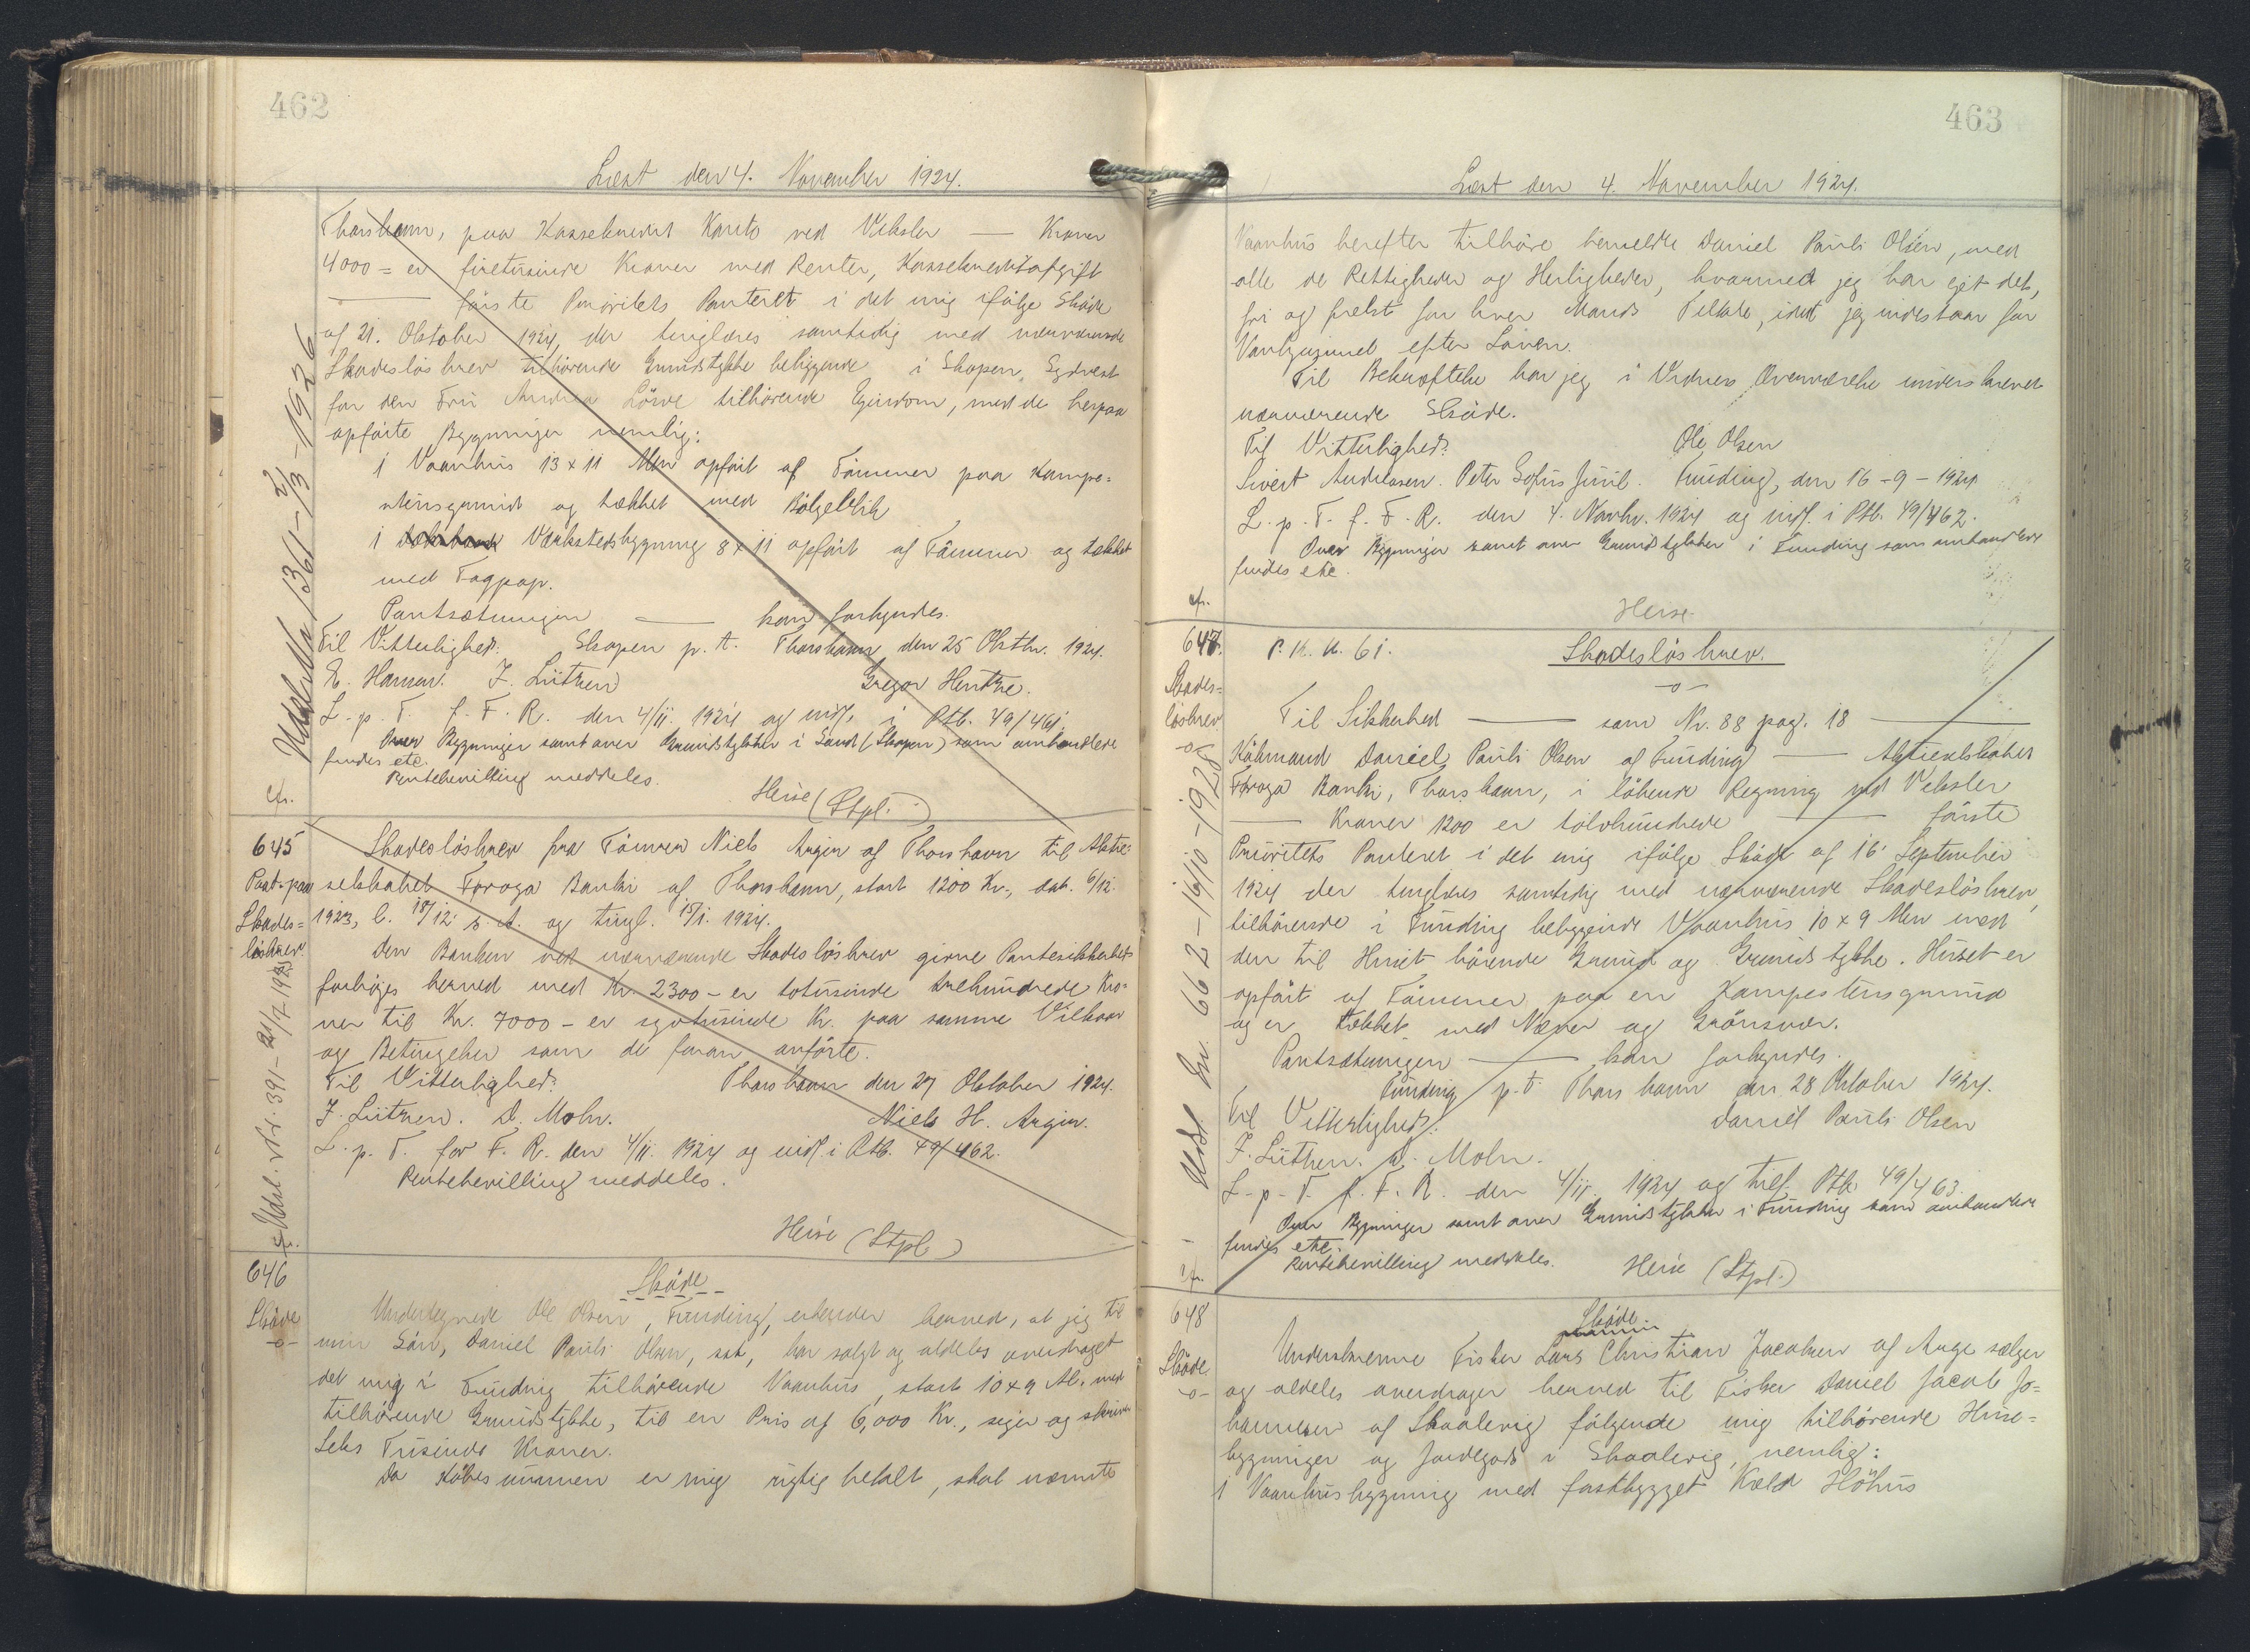 462
Læst den 4. November 1924.
Thorshavn, paa Kassekredit Konto ved Veksler — Kroner
4000 = er firetusinde Kroner med Renter, Kassekreditafgift
— første Prioritets Panteret i det mig ifølge Skøde
af 21. Oktober 1924, der tinglæses samtidig med nærværende
Skadesløsbrev tilhørende Grundstykke beliggende i Skopen, Sydvest
for den Fru Andrea Löwe tilhørende Ejendom, med de herpaa
opførte Bygninger nemlig:
1 Vaanhus 13 x 11 Alen opført af Tømmer paa Kampe=
stensgrund og tækket med Bølgeblik
1 Værkstedsbygning 8 x 11 opført af Tømmer og tækket
med Tagpap.
Pantsætningen — kan forkyndes.
Til Vitterlighed: Skopen p. t. Thorshavn den 25 Oktbr. 1924.
E. Hansen. J. Lützen Gregor Hentze.
L. p. T. f. F. R. den 4/11. 1924 og indf. i Ptb. 49/461.
Over Bygninger samt over Grundstykker i Sand (Skopen) som omhandlede
findes etc.
Rentebevilling meddeles.
Heise (Stpl.)
Udsl. No 1361 - 2/3 - 1926
cfr.
645
Paategn paa
Skades=
løsbrev.
Skadesløsbrev fra Tømrer Niels Argin af Thorshavn til Aktie=
selskabet Føroya Banki af Thorshavn, stort 1200 Kr., dat. 6/12.
1923, l. 18/12. s. A. og tingl. 15/1. 1924.
Den Banken ved nærværende Skadesløsbrev givne Pantesikkerhed
forhøjes herved med Kr. 2300 - er totusinde trehundrede Kro=
ner til Kr. 7000 - er syvtusinde Kr. paa samme Vilkaar
og Betingelser som de foran anførte.
Til Vitterlighed: Thorshavn den 27 Oktober 1924.
J. Lützen. D. Mohr. Niels H. Argin.
L. p. T. for F. R. den 4/11. 1924 og indf. i Ptb. 49/462.
Rentebevilling meddeles.
Heise (Stpl)
Udsl. Nr. 391 - 21/7 1925
cfr.
646
Skøde
-o-
Skøde
Undertegnede Ole Olsen, Funding, erkender herved, at jeg til
min Søn, Daniel Pauli Olsen, sst, har solgt og aldeles overdraget
det mig i Funding tilhørende Vaanhus, stort 10 x 9 Al. med
tilhørende Grundstykke, til en Pris af 6,000 Kr., siger og skriver
Seks Tusinde Kroner.
Da Købesummen er mig rigtig betalt, skal nævnte
463
Læst den 4. November 1924.
Vaanhus herefter tilhøre bemeldte Daniel Pauli Olsen, med
alle de Rettigheder og Herligheder, hvormed jeg har ejet det,
fri og frelst for hver Mands Tiltale, idet jeg indestaar for
Vanhjemmel efter Loven.
Til Bekræftelse har jeg i Vidners Overværelse underskrevet
nærværende Skøde.
Til Vitterlighed: Ole Olsen
Sivert Andreasen. Peter Sofus Juul. Funding, den 16 - 9 - 1924
L. p. T. f. F. R. den 4. Novbr. 1924 og indf. i Ptb. 49/462.
Over Bygninger samt over Grundstykker i Funding som omhandlede
findes etc.
Heise.
cfr.
647.
Skades=
løsbrev
-o-
P. K. K. 61. Skadesløsbrev.
-o-
Til Sikkerhed — som Nr. 88 pag. 18 —
Købmand Daniel Pauli Olsen af Funding — Aktieselskabet
Føroya Banki, Thorshavn, i løbende Regning ved Veksler
— Kroner 1200 er tolvhundrede — første
Prioritets Panteret i det mig ifølge Skøde af 16. September
1924 der tinglæses samtidig med nærværende Skadesløsbrev,
tilhørende i Funding beliggende Vaanhus 10 x 9 Alen med
den til Huset hørende Grund og Grundstykke. Huset er
opført af Tømmer paa en Kampestensgrund
og er tækket med Næver og Grønsvær.
Pantsætningen — kan forkyndes.
Funding p. t. Thorshavn den 28 Oktober 1924.
Til Vitterlighed: Daniel Pauli Olsen
J. Lützen. D. Mohr.
L. p. T. f. F. R. den 4/11. 1924 og tilf. Ptb. 49/463.
Over Bygninger samt over Grundstykker i Funding som omhandlede
findes etc.
Rentebevilling meddeles. Heise (Stpl.)
Udsl. Nr. 662 - 16/10 - 1928
cfr.
648
Skøde
-o-
Skøde
Underskrevne Fisker Lars Christian Jacobsen af Ange sælger
og aldeles overdrager herved til Fisker Daniel Jacob Jo=
hannesen af Skaalevig følgende mig tilhørende Huse=
bygninger og Jordegods i Skaalevig, nemlig:
1 Vaanhusbygning med fastbygget Kæld Höhus